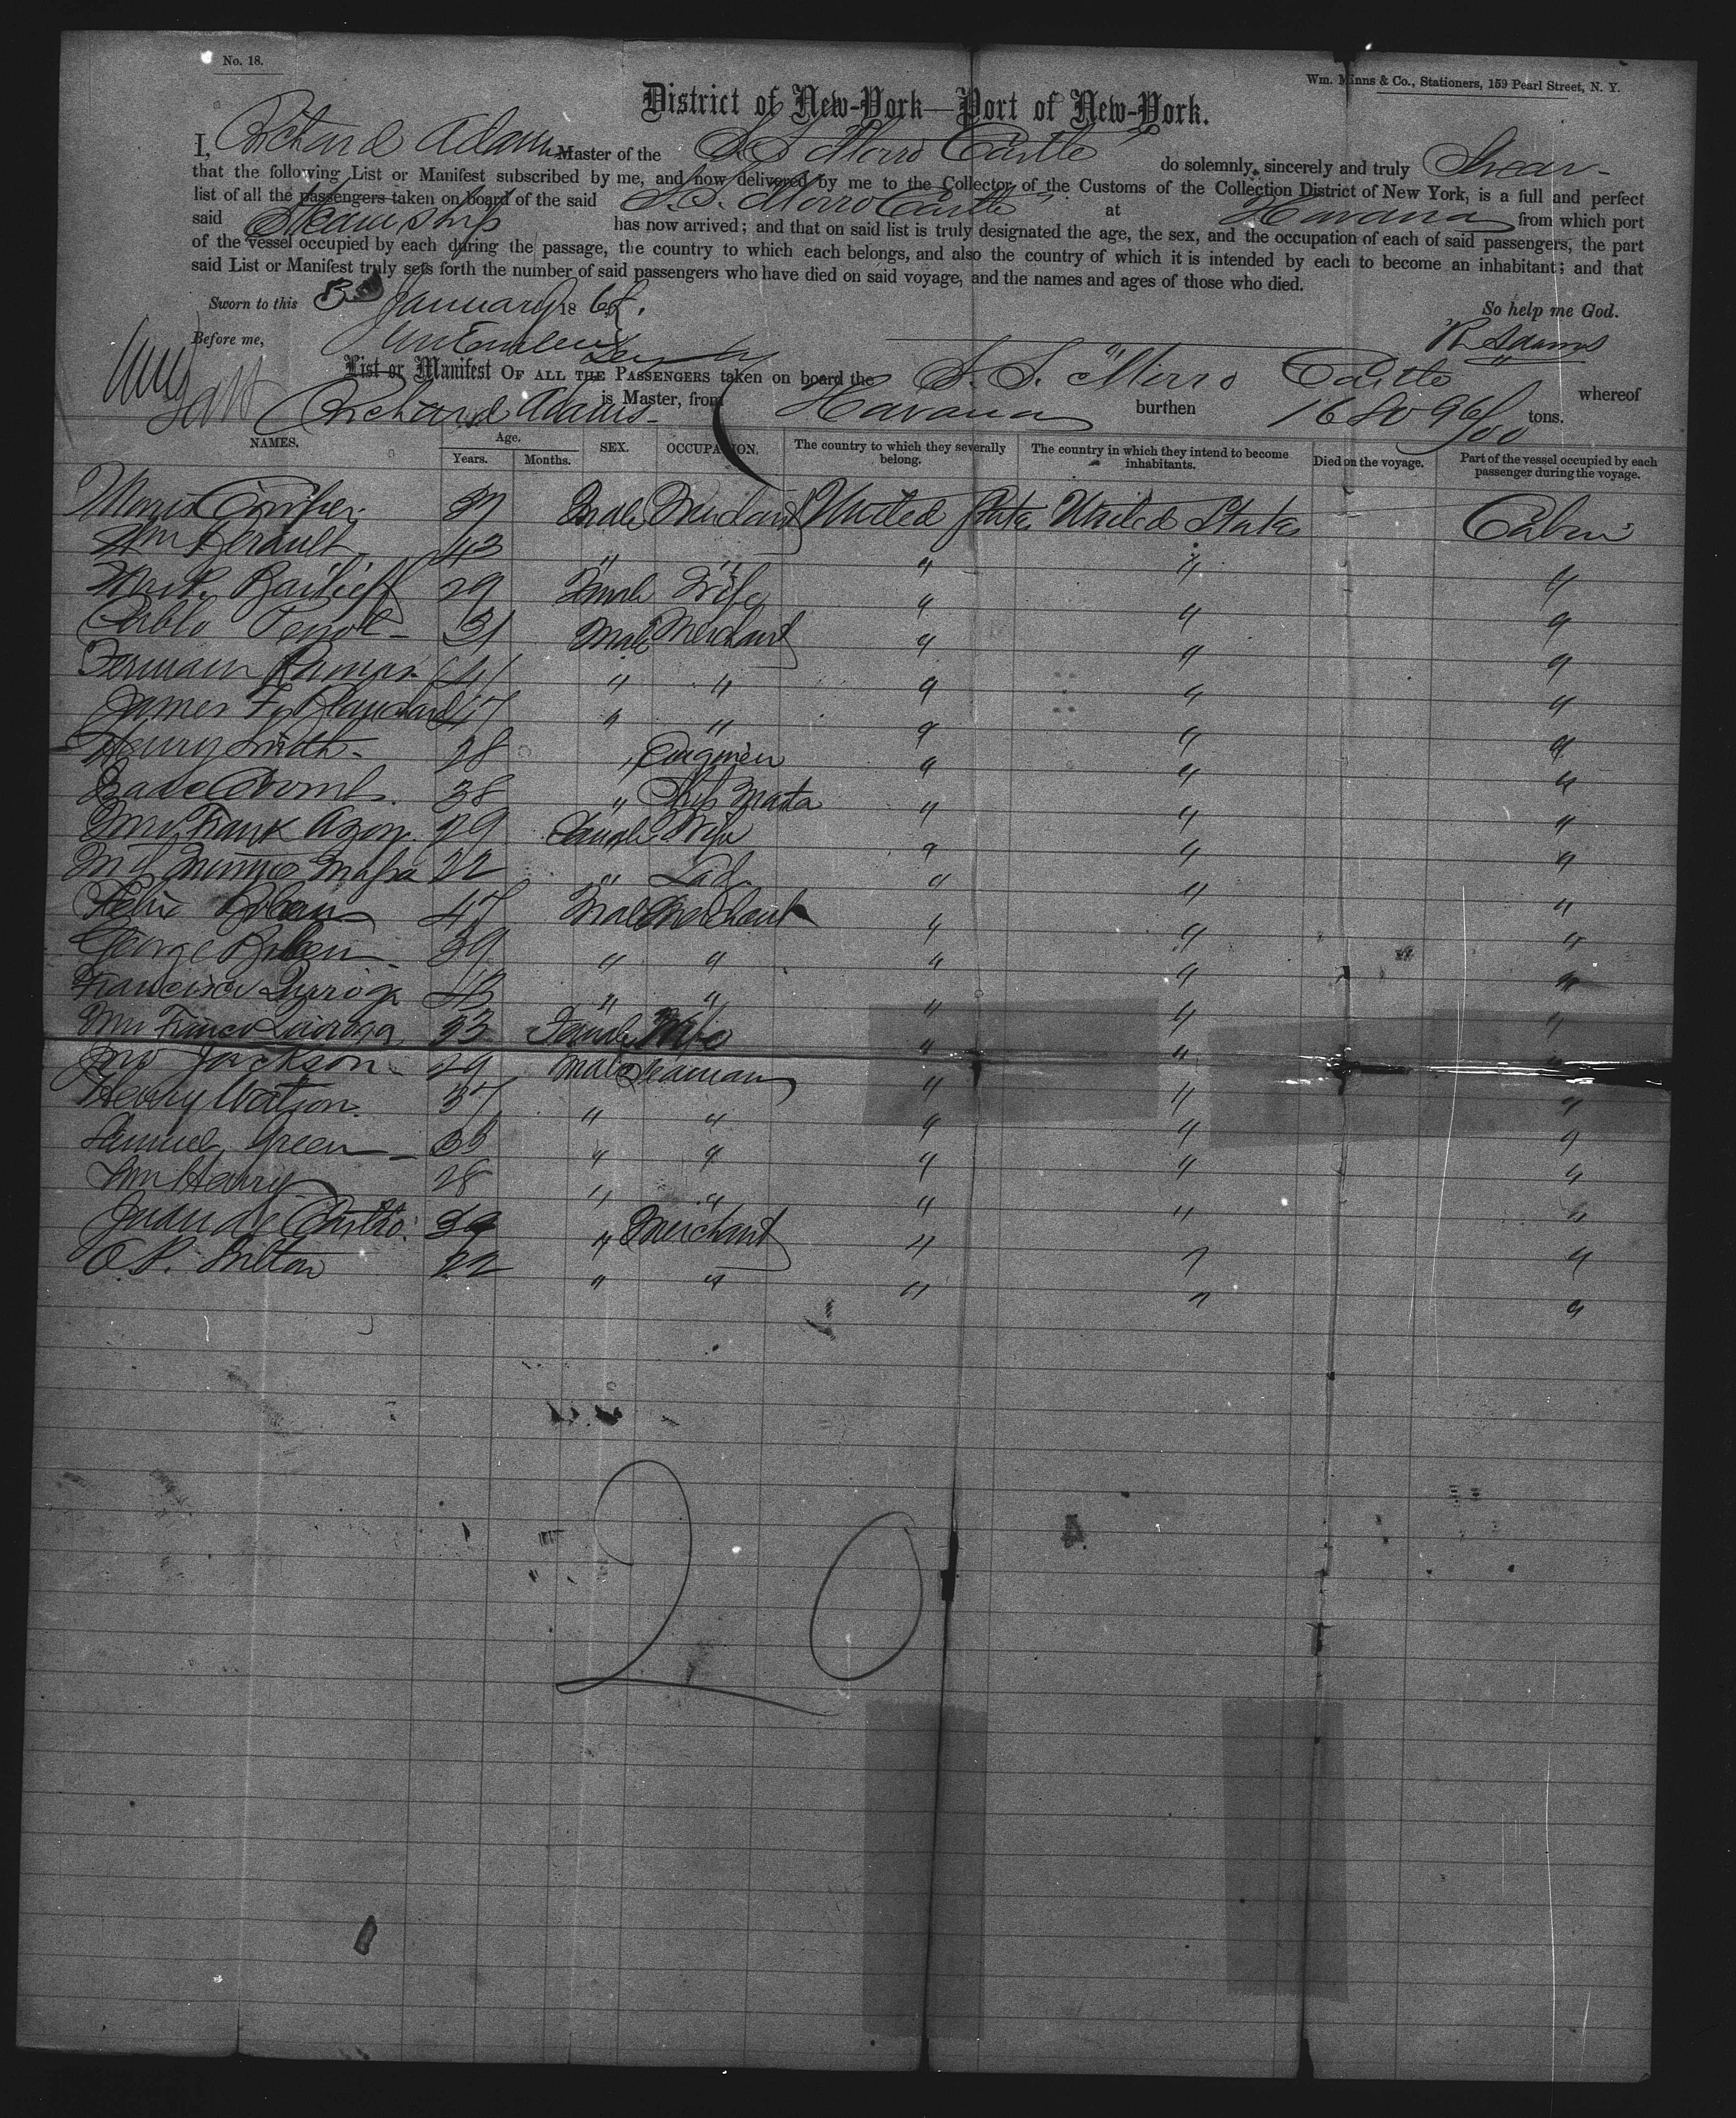 No. 18.
Wm. Minns & Co., Stationers, 159 Pearl Street, N. Y.
District of New-York—Port of New-York.
I, Richard Adams Master of the S.S Morro Castle do solemnly, sincerely and truly Swear
that the following List or Manifest subscribed by me, and now delivered by me to the Collector of the Customs of the Collection District of New York, is a full and perfect
list of all the passengers taken on board of the said S.S. Morro Castle at Havana from which port
said Steamship has now arrived; and that on said list is truly designated the age, the sex, and the occupation of each of said passengers, the part
of the vessel occupied by each during the passage, the country to which each belongs, and also the country of which it is intended by each to become an inhabitant; and that
said List or Manifest truly sets forth the number of said passengers who have died on said voyage, and the names and ages of those who died.
Sworn to this January 186 So help me God.
Before me, R Adams
List or Manifest OF ALL THE PASSENGERS taken on board the S.S. "Morro Castle whereof
Richard Adams is Master, from Havana burthen 1680 96/100 tons.
NAMES. Age. Years. Months. SEX. OCCUPATION. The country to which they severally belong. The country in which they intend to become inhabitants. Died on the voyage. Part of the vessel occupied by each passenger during the voyage.
37 Male Merchant United States United States Cabin
Wm 43 " " " " "
29 Female Wife " " "
Pablo 31 Male Merchant " " "
Ramos 41 " " " " "
James F. Blanchard 47 " " " " "
Henry Smith 28 " " " "
38 " Ship Master " " "
Mrs Frank 29 Female Wife " " "
22 " Lady " " "
Felix 47 Male Merchant " " "
George 39 " " " " "
Francisco Quiroga 43 " " " " "
Mrs Franco Quiroga 33 Female Wife " " "
Jno Jackson 29 Male Seaman " " "
Henry Watson 37 " " " " "
Samuel Green 33 " " " " "
Wm Henry 28 " " " " "
Juan de Castro 39 " Merchant " " "
O.P. 22 " " " " "
20